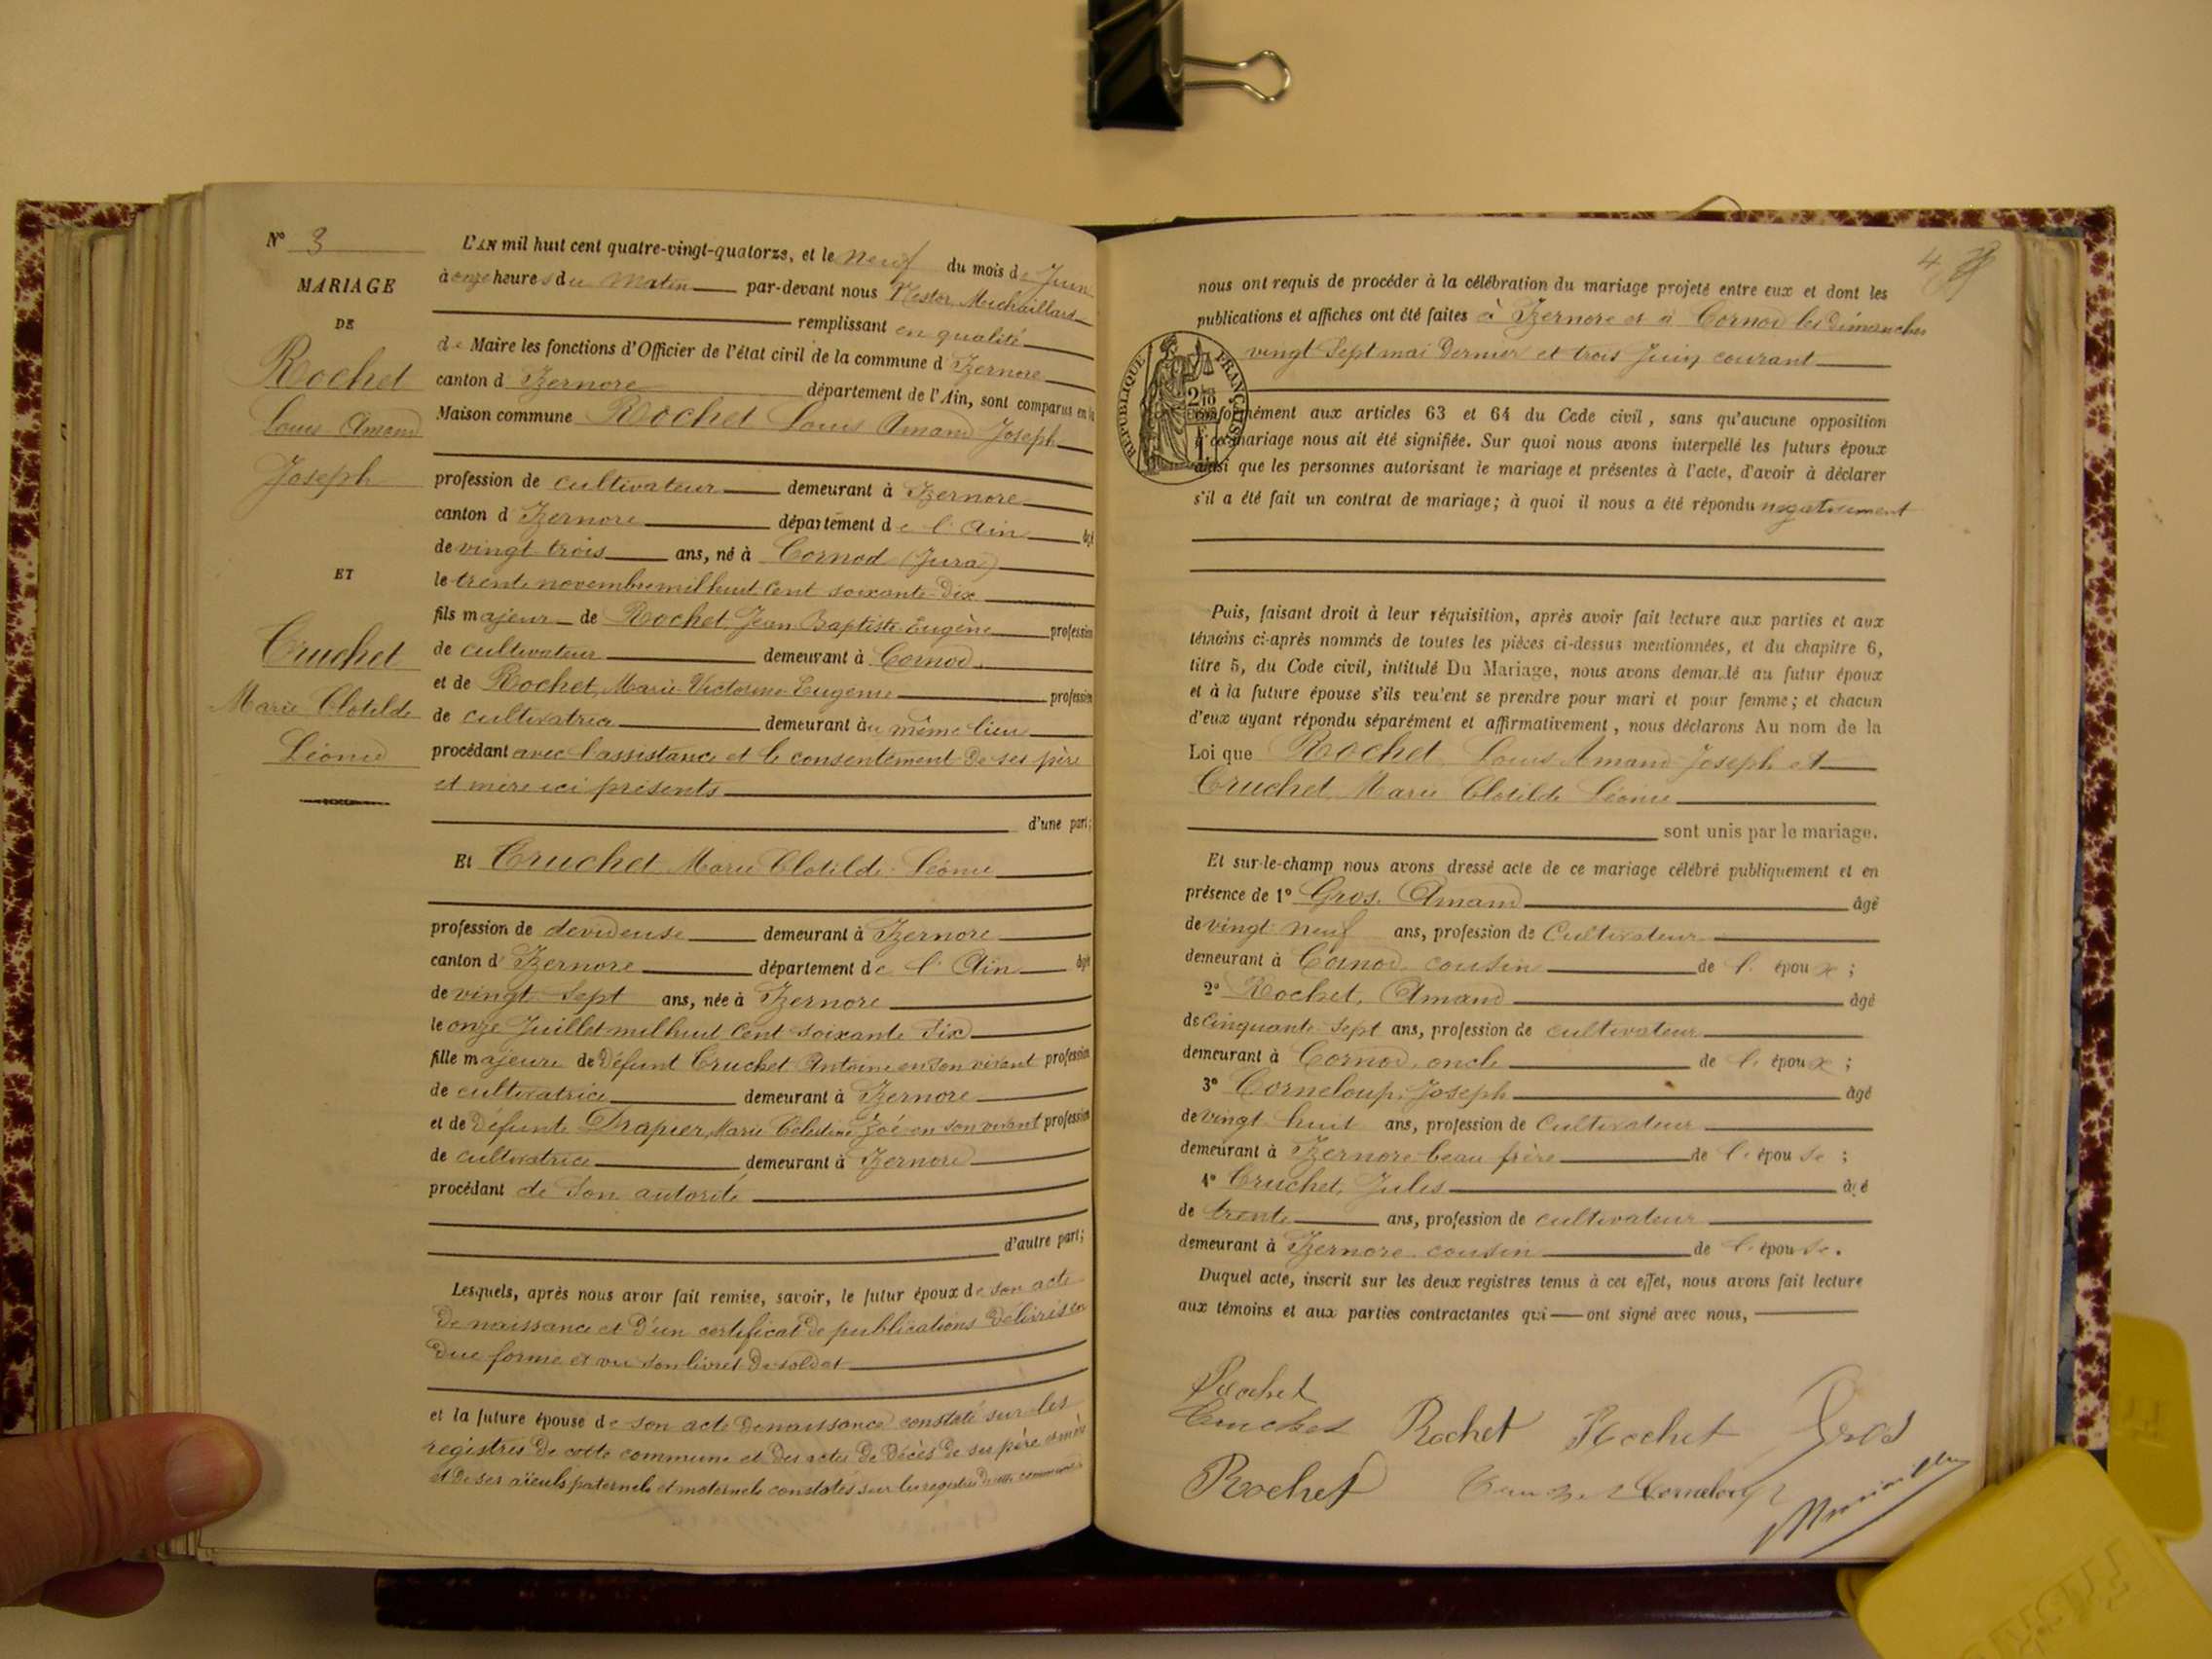 N° 3
MARIAGE
DE
Rochet
Louis Amand
Joseph
ET
Cruchet
Marie Clotilde
Léonie
L'AN mil huit cent quatre-vingt-quatorze, et le neuf du mois de Juin
à onze heures du Matin par-devant nous Nestor
remplissant en qualité
de Maire les fonctions d'Officier de l'état civil de la commune d'Izernore
canton d'Izernore département de l'Ain, sont comparus en la
Maison commune Rochet Louis Amand Joseph
profession de cultivateur demeurant à Izernore
canton d'Izernore département de l'Ain âgé
de vingt trois ans, né à Cornod (Jura)
le trente novembre mil huit cent soixante-Dix
fils majeur de Rochet, Jean Baptiste Eugène profession
de cultivateur demeurant à Cornod
et de Rochet, Marie Victorine Eugénie profession
de cultivatrice demeurant au même lieu
procédant avec l'assistance et le consentement de ses père
et mère ici présents
d'une part;
Et Cruchet Marie Clotilde Léonie
profession de devideuse demeurant à Izernore
canton d'Izernore département de l'Ain âgée
de vingt sept ans, née à Izernore
le onze Juillet mil huit cent soixante six
fille majeure de Défunt Cruchet Antoine en son vivant profession
de cultivatrice demeurant à Izernore
et de Défunte Drapier, Marie Célestine Zoé en son vivant profession
de cultivatrice demeurant à Izernore
procédant de Son autorité
d'autre part;
Lesquels, après nous avoir fait remise, savoir, le futur époux de son acte
De naissance et D'un certificat de publications Délivrés en
Due forme et vu son livret De soldat
et la future épouse de son acte De naissance constaté sur les
registres De cette commune et Des actes De Décès De ses père et mère
et De ses aïeuls paternels et maternels constatés sur les registres De cette commune
4
nous ont requis de procéder à la célébration du mariage projeté entre eux et dont les
publications et affiches ont été faites à Izernore et à Cornod les dimanches
vingt Sept mai Dernier et trois Juin courant
RÉPUBLIQUE FRANÇAISE
conformément aux articles 63 et 64 du Code civil, sans qu'aucune opposition
à ce mariage nous ait été signifiée. Sur quoi nous avons interpellé les futurs époux
ainsi que les personnes autorisant le mariage et présentes à l'acte, d'avoir à déclarer
s'il a été fait un contrat de mariage; à quoi il nous a été répondu négativement
Puis, faisant droit à leur réquisition, après avoir fait lecture aux parties et aux
témoins ci-après nommés de toutes les pièces ci-dessus mentionnées, et du chapitre 6,
titre 5, du Code civil, intitulé Du Mariage, nous avons demandé au futur époux
et à la future épouse s'ils veulent se prendre pour mari et pour femme; et chacun
d'eux ayant répondu séparément et affirmativement, nous déclarons Au nom de la
Loi que Rochet Louis Amand Joseph et
Cruchet Marie Clotilde Léonie
sont unis par le mariage.
Et sur-le-champ nous avons dressé acte de ce mariage célébré publiquement et en
présence de 1° Gros, Amand âgé
de vingt neuf ans, profession de Cultivateur
demeurant à Cornod cousin de l'époux;
2° Rochet, Amand âgé
de Cinquante Sept ans, profession de cultivateur
demeurant à Cornod, oncle de l'époux;
3° Corneloup, Joseph âgé
de vingt huit ans, profession de Cultivateur
demeurant à Izernore beau frère de l'épouse;
4° Cruchet, Jules âgé
de trente ans, profession de cultivateur
demeurant à Izernore cousin de l'épouse.
Duquel acte, inscrit sur les deux registres tenus à cet effet, nous avons fait lecture
aux témoins et aux parties contractantes qui ont signé avec nous,
Rochet
Cruchet Rochet Rochet Gros
Rochet Cruchet Corneloup